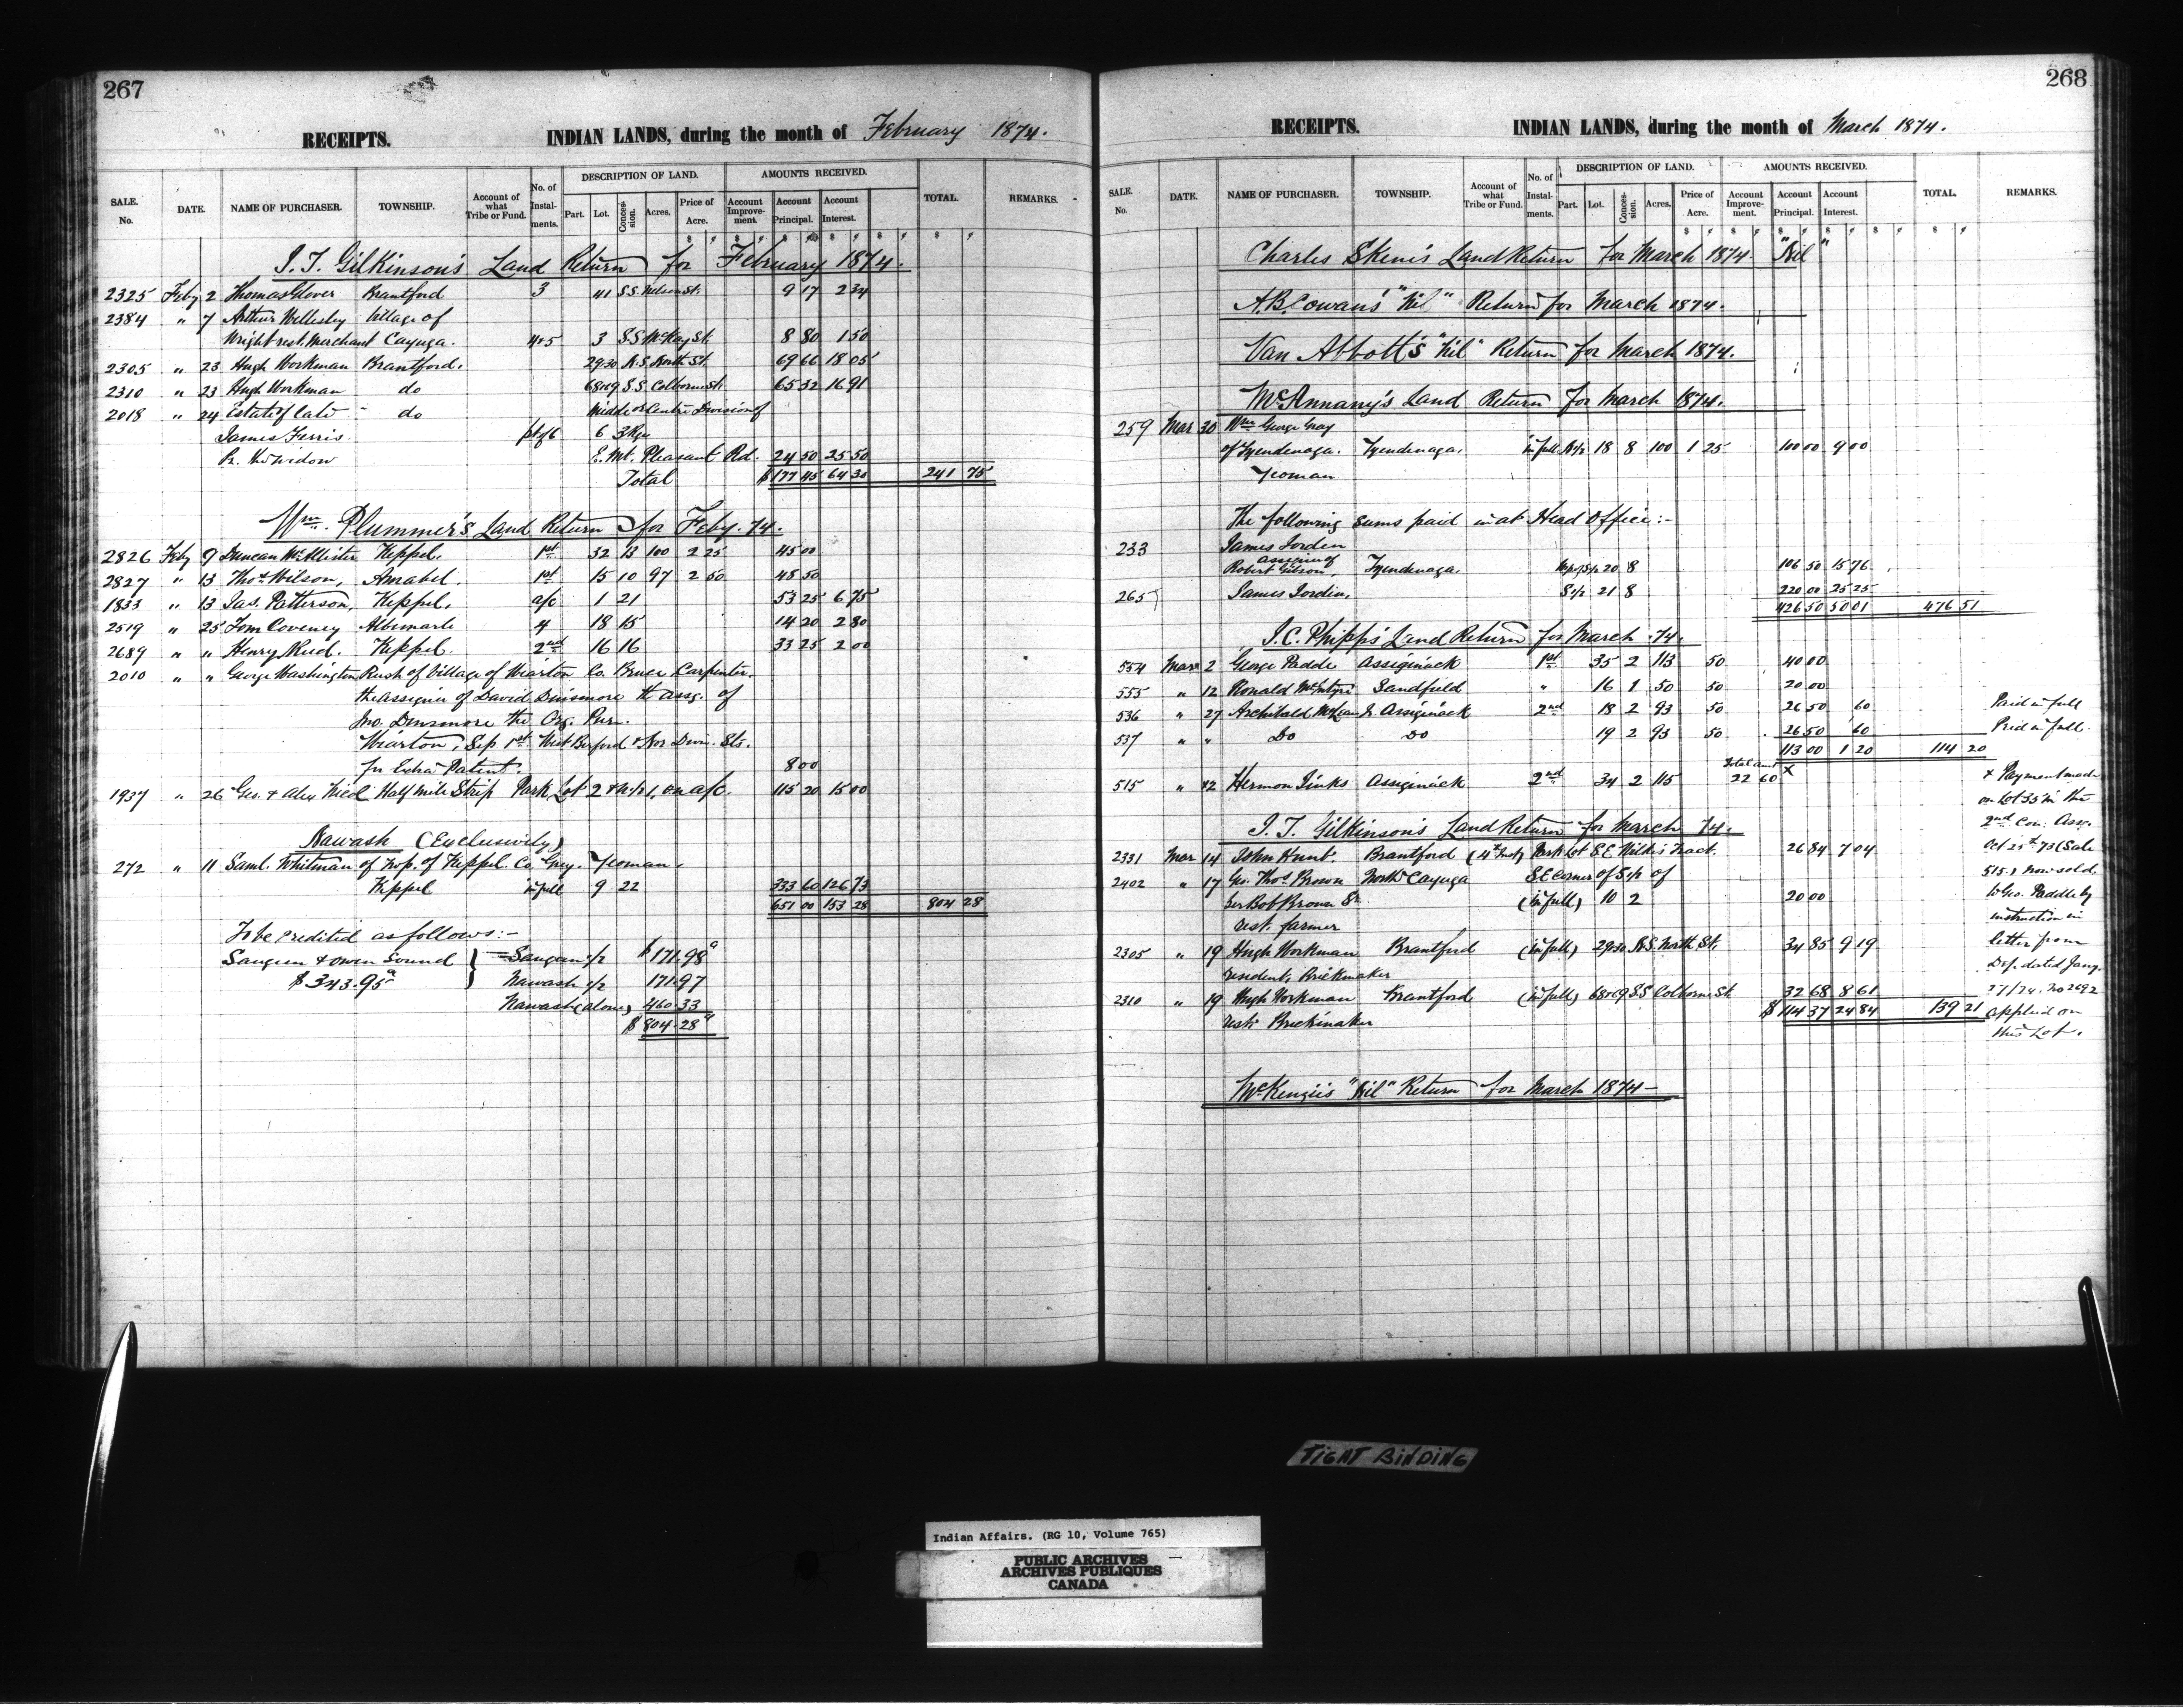 267
RECEIPTS. INDIAN LANDS, during the month of February 1874.
SALE. No. DATE. NAME OF PURCHASER. TOWNSHIP. Account of what Tribe or Fund. No. of Instal-ments. DESCRIPTION OF LAND. Part. Lot. Conces-sion. Acres. Price of Acre. AMOUNTS RECEIVED. Account Improve-ment. Account Principal. Account Interest. TOTAL. REMARKS.
J. T. Gilkinson's Land Return for February 1874.
2325 Feby 2 Thomas Glover Brantford 3 41 S.S. Nelson St. 9 17 2 34
2384 " 7 Arthur Wellesley Village of
Wright rest. Merchant Cayuga. 4&5 3 S.S. McKay St. 8 80 1 50
2305 " 23 Hugh Workman Brantford. 29&30 N.S. North St. 69 66 18 05
2310 " 23 Hugh Workman do 68&69 S.S. Colborne St. 65 32 16 91
2018 " 24 Estate of late do Middle or Centre Division of
James Ferris pt of 6 6 3 Rge
Pr. his widow E. Mt. Pleasant Rd. 24 50 25 50
Total $177 45 64 30 241 75
Wm. Plummer's Land Return for Feby. 74.
2826 Feby 9 Duncan McAllister Keppel. 1st 32 13 100 2 25 45 00
2827 " 13 Thos. Wilson, Amabel. 1st 15 10 97 2 50 48 50
1833 " 13 Jas. Patterson, Keppel. a/c 1 21 53 25 6 75
2519 " 25 Tom Coveney Albemarle 4 18 15 14 20 2 80
2689 " " Henry Reid. Keppel. 2nd 16 16 33 25 2 00
2010 " " George Washington Rush of Village of Wiarton Co. Bruce Carpenter.
the Assignee of David Dinsmore the assg. of
Jno. Dinsmore the Org. Pur.
Wiarton, Sep 1st West Berford & Nor Divn. Sts.
for Extra Patent. 8 00
1937 " 26 Geo. & Alex Nicol Half Mile Strip Park Lot 2 & N.1/2 1, on a/c. 115 20 15 00
Nawash (Exclusively)
272 " 11 Saml. Whitman of Twp. of Keppel Co Grey. Yeoman.
Keppel in full 9 22 333 60 126 73
651 00 153 28 804 28
To be credited as follows:-
Saugeen & Owen Sound } Saugeen 1/2 $171.98
$343.95 Nawash 1/2 171.97
Nawash (alone) 460.33
$804.28
268
RECEIPTS. INDIAN LANDS, during the month of March 1874.
SALE. No. DATE. NAME OF PURCHASER. TOWNSHIP. Account of what Tribe or Fund. No. of Instal-ments. DESCRIPTION OF LAND. Part. Lot. Conces-sion. Acres. Price of Acre. AMOUNTS RECEIVED. Account Improve-ment. Account Principal. Account Interest. TOTAL. REMARKS.
Charles Skene's Land Return for March 1874 "Nil"
A.B. Cowan's "Nil" Return for March 1874.
Van Abbott's "Nil" Return for March 1874.
McAnnany's Land Return for March 1874.
259 Mar 30 Wm George Gray
of Tyendenaga. Tyendenaga. in full N1/2 18 8 100 1 25 100 00 9 00
Yeoman
The following sums paid in at Head Office:-
233 James Jordin
assignee of
Robert Gibson, Tyendenaga. 20 8 106 50 15 76
265 James Jordin, S1/2 21 8 220 00 25 25
426 50 50 01 476 51
J.C. Phipps' Land Return for March 74.
554 Mar 2 George Paddle Assiginack 1st 35 2 113 50 40 00
555 " 12 Ronald McIntyre Sandfield " 16 1 50 50 20 00
536 " 27 Archibald McLean Jr Assiginack 2nd 18 2 93 50 26 50 60 Paid in full
537 " " Do Do 19 2 93 50 26 50 60 Paid in full
113 00 1 20 114 20
515 " 12 Hermon Jinks Assiginack 2nd 34 2 115 Total amt 22 60 X
+ Payment made
on Lot 35 in the
2nd Con: Assg.
Oct 25th 73 (Sale
515.) now sold
to Geo. Paddle by
instruction in
letter from
Dep. dated Jany.
27/74. No 2692
applied on
this Lot.
J. T. Gilkinson's Land Return for March 74.
2331 Mar 14 John Hunt. Brantford (4th Inst) Park Lot 8 E Wilkes Tract. 26 84 7 04
2402 " 17 Geo. Thos. Brown North Cayuga S.E corner of S1/2 of
per Bob Brown Sr. (in full) 10 2 20 00
rest. farmer
2305 " 19 Hugh Workman Brantford (in full) 29&30 N.S. North St. 34 85 9 19
resident, Brickmaker
2310 " 19 Hugh Workman Brantford (in full) 68&69 S.S Colborne St 32 68 8 61
rest. Brickmaker $114 37 24 84 139 21
McKenzie's "Nil" Return for March 1874-
TIGHT BINDING
Indian Affairs. (RG 10, Volume 765)
PUBLIC ARCHIVES
ARCHIVES PUBLIQUES
CANADA